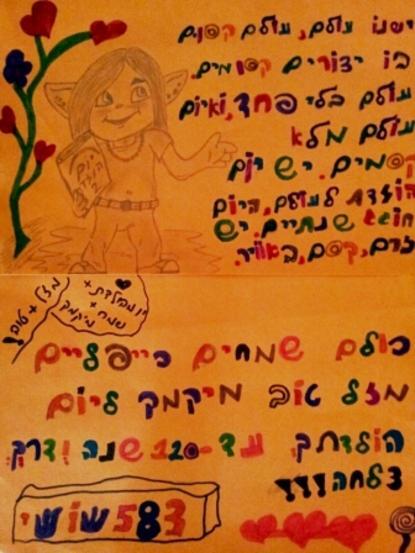 ישנו עולם, עולם קסום
בו יצורים קסומים.
עולם בלי פחד, ואיום
עולם מלא
קסמים. יש יום
הולדת לעולם, היום
חוגג שנתיים. יש
כרם, קסם, באוויר.
מזל + טוב!
יום הולדת +
שמח +
מיקמק
כולם שמחים כייפליים
מזל טוב מיקמק ליום
הולדתך עד -120 שנה ודרך
צלחהההה
583שושי